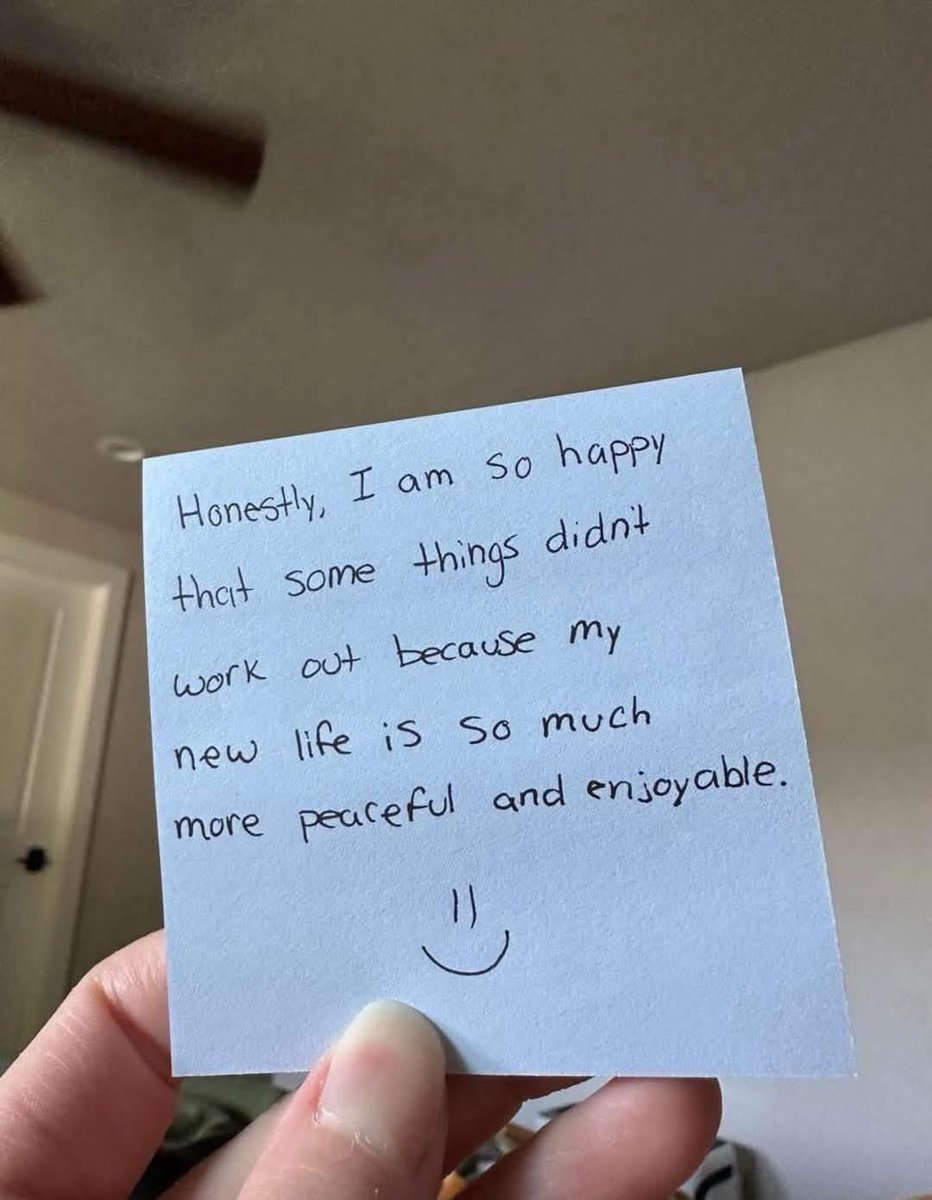 Honestly, I am so happy
that some things didn't
work out because my
new life is so much
more peaceful and enjoyable.